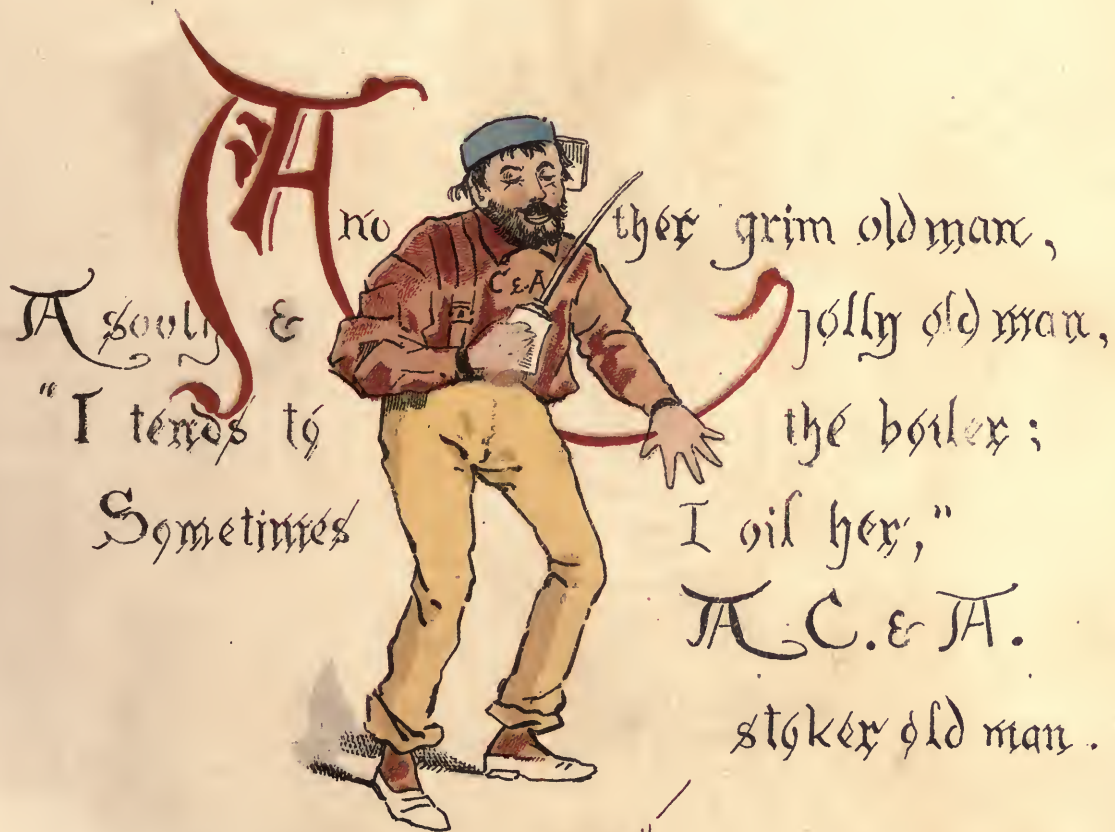 Another grim old man,
A souly & jolly old man,
"I tends to the boiler;
Sometimes I oil her,"
A C. & A.
stoker old man.
C & A